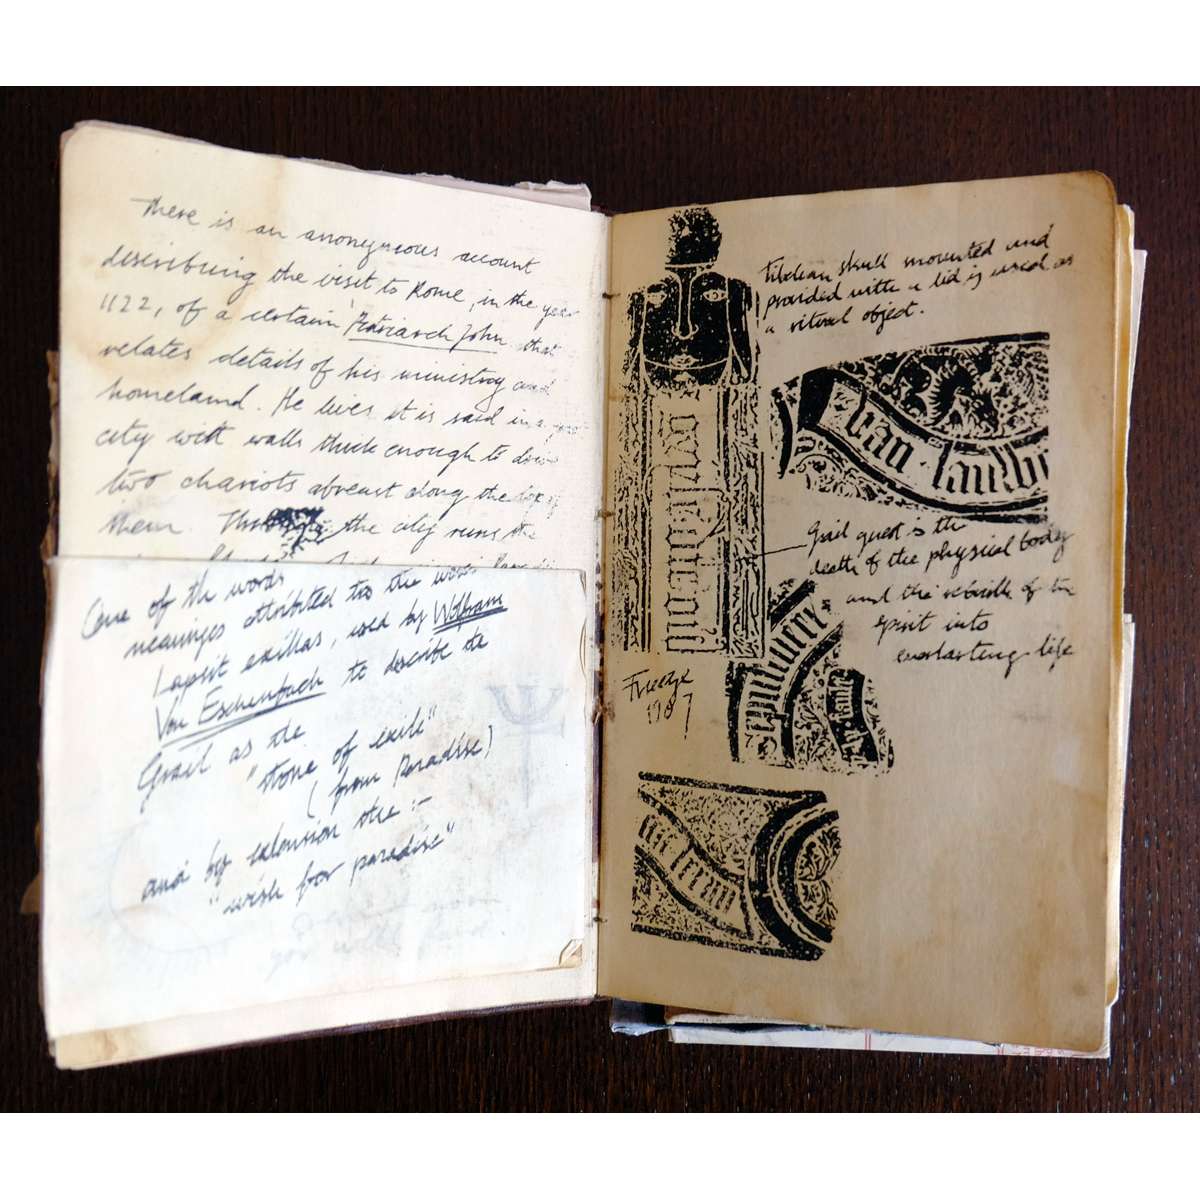 There is an anonymous account
describing the visit to Rome, in the year
1122, of a certain Patriarch John that
relates details of his ministry and
homeland. He lives it is said in a
city with walls thick enough to drive
two chariots abreast along the top of
them. the city runs the
One of the words
meanings attributed to the words
Lapsit exillas, used by Wolfram
Von Eschenbach to describe the
Grail as the
"stone of exile"
(from Paradise)
and by extension the :-
"wish for paradise"
you will find.
Tibetan skull mounted and
provided with a lid is used as
a ritual object.
van
Grail quest is the
death of the physical body
and the rebirth of the
spirit into
everlasting life
Freeze
1987